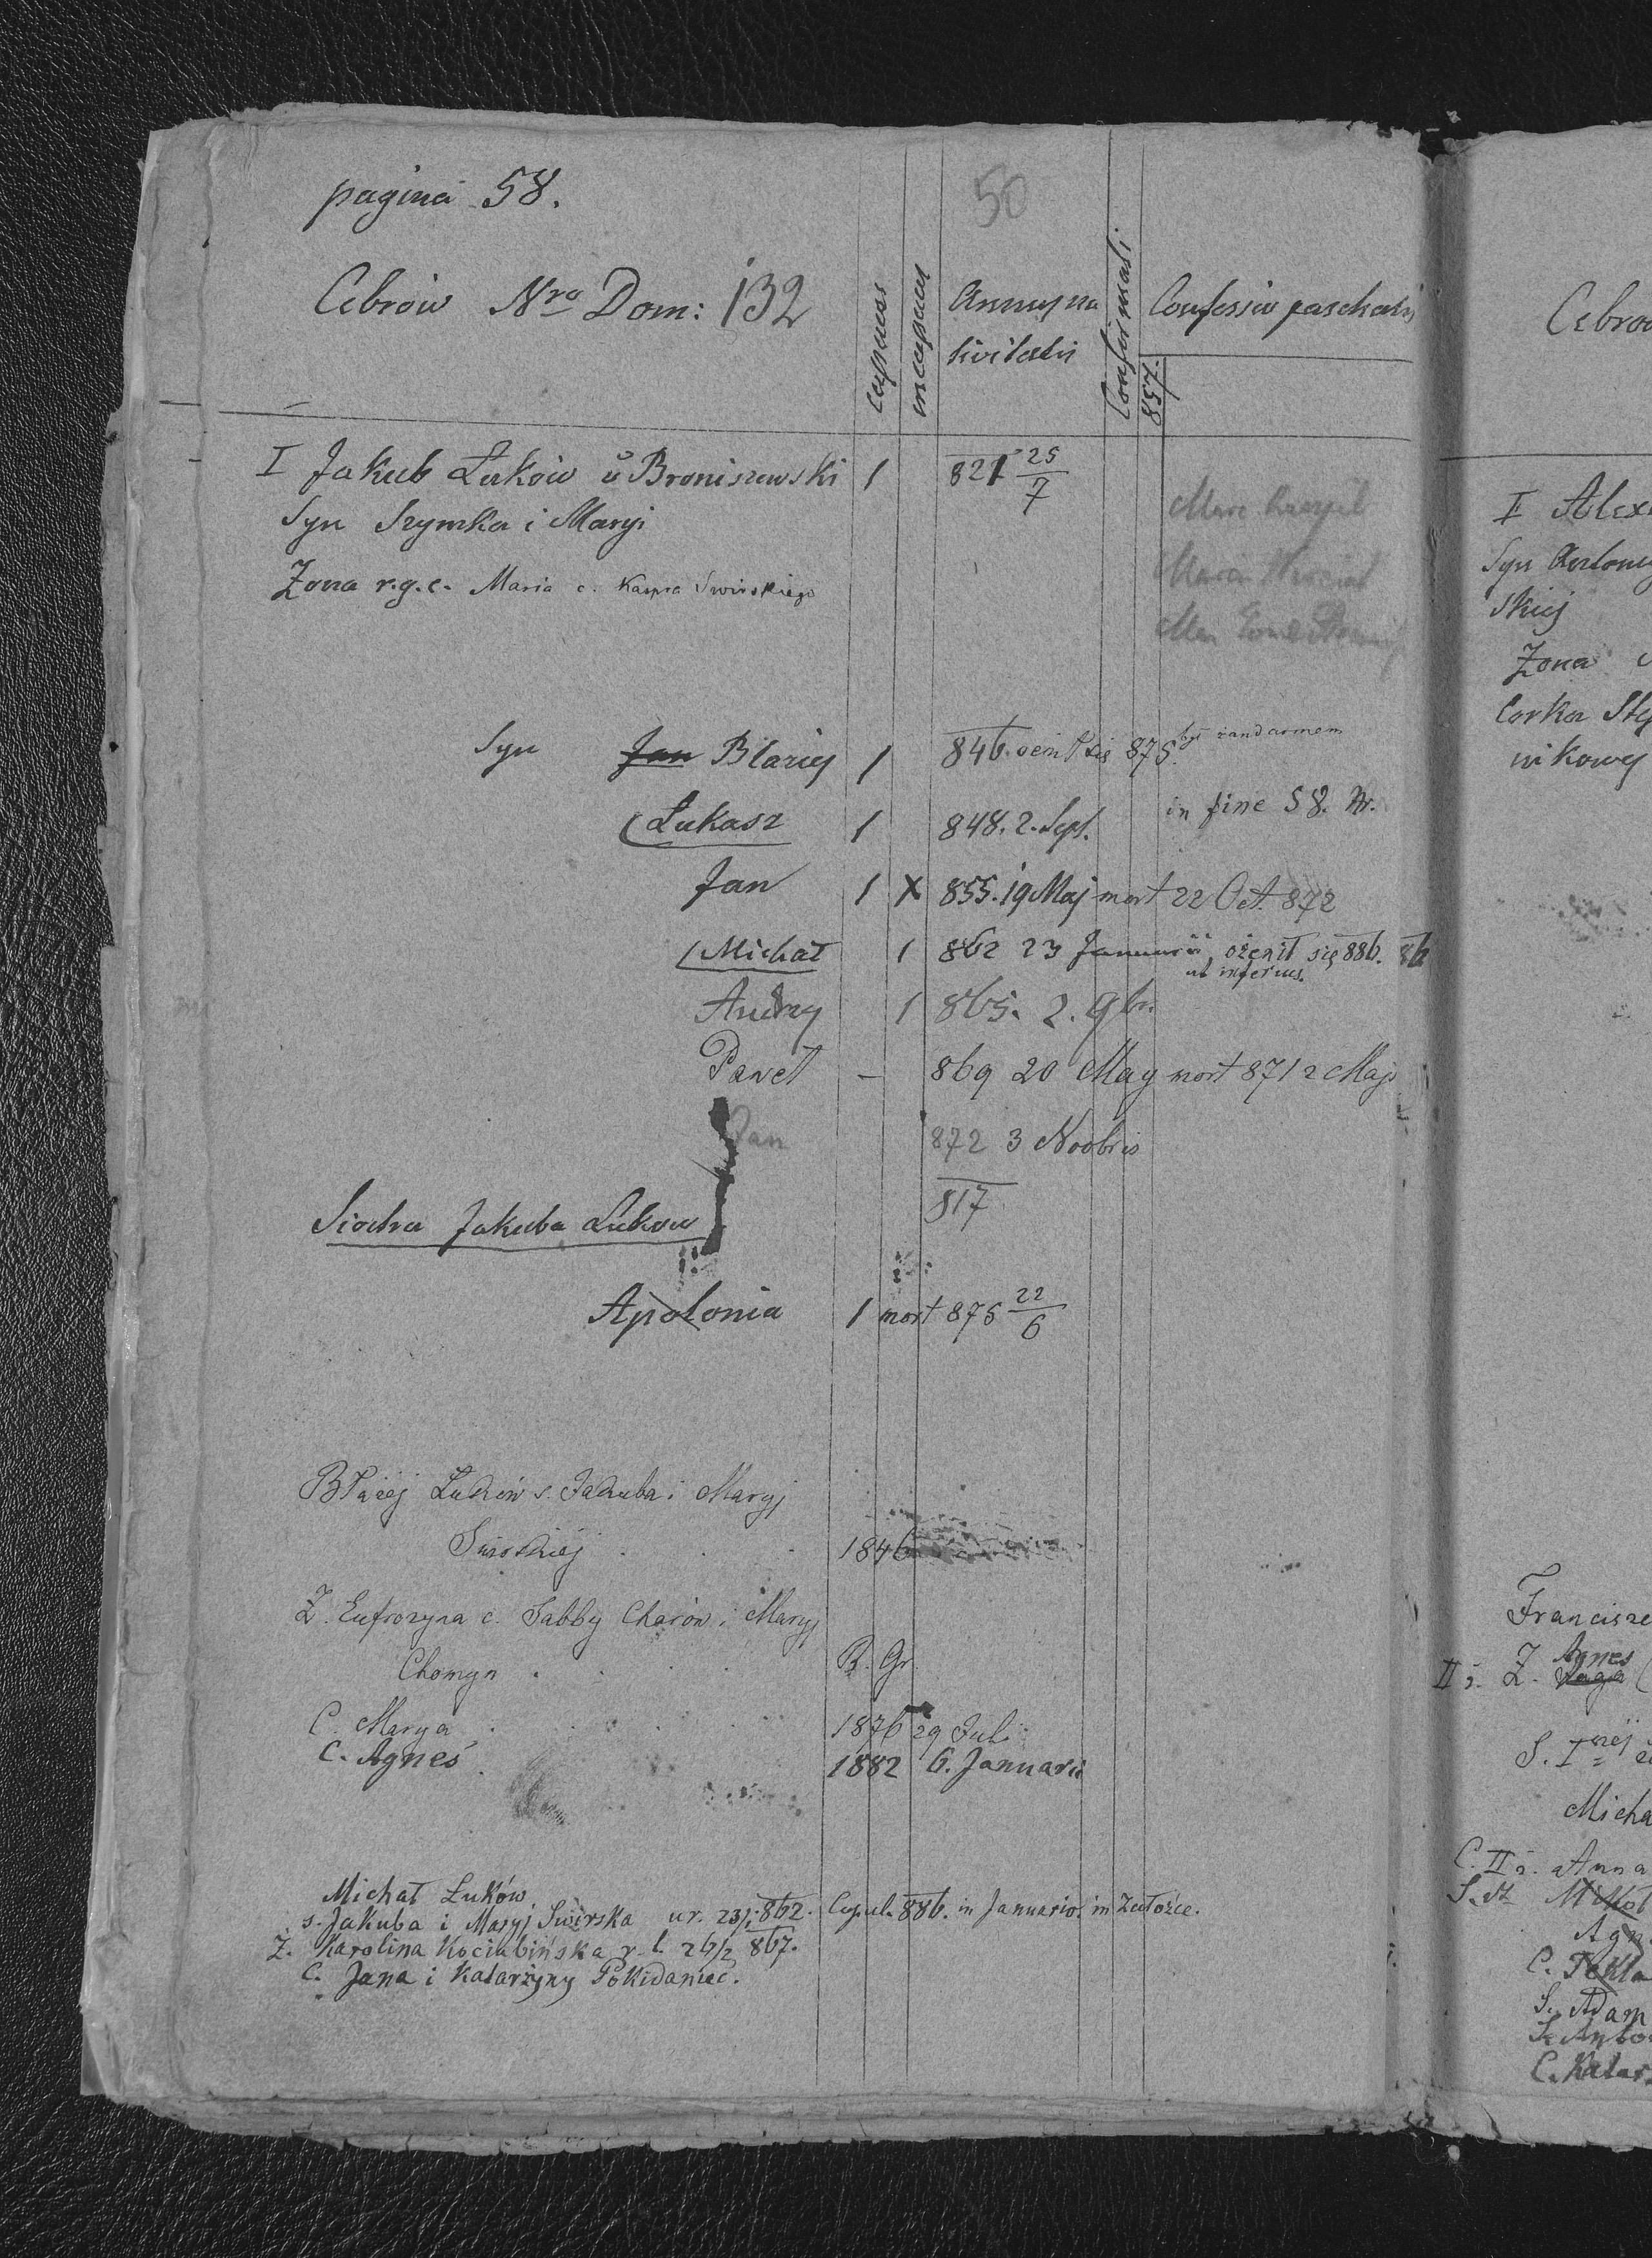 pagina 58.
50
Cebrów Nro Dom: 132
capaces
incapaces
Annus na
tivitatis
Confirmati
Confessio paschalis
857.
Cebrow
I Jakub Łuków v Broniszewski 1 821 25/7
Syn Szymka i Maryi
Żona r.g.c. Maria c. Kaspra Swirskiego
Syn Jan Błaziej 1 846. oenił się 875. był zandarmem
Łukasz 1 848. 2. Sept. in fine 58. Nr.
Jan 1 X 855. 19 Maj mort 22 Oct. 872
Michał 1 862 23 Januarii ożenił się 886.
ut inferius.
Andrzy 1 865. 2. 9br.
Paweł - 869 20 May mort 871 2 Maji
Jan 872 3 Novbris
817
Siostra Jakuba Łukow
Apolonia 1 mort 875 22/6
Błażej Łuków s. Jakuba i Maryj
Swirskiej . . . 1846
Ż. Eufrozyna c. Sabby Charów i Maryj
Chomyn . . . . R. Gr.
C. Marya . . . 1876 29 Juli
C. Agnes . 1882 6. Januarii
Michał Łuków
s. Jakuba i Maryj Swirska ur. 23/1 862. Copul. 886. in Januario. in Załoźce.
Ż. Karolina Kociubińska r. l. 26/2 867.
C. Jana i Katarżyny Pokidaniec.
I Alex
Syn Antoni
skiej
Żona
Corka Ste
nikowej
Francisze
II ż. Ż. Agnes
S. I
Micha
C. II ż. Anna
Mikoł
Agn
C. Tekla
S. Adam
S. Anto
C. Katar